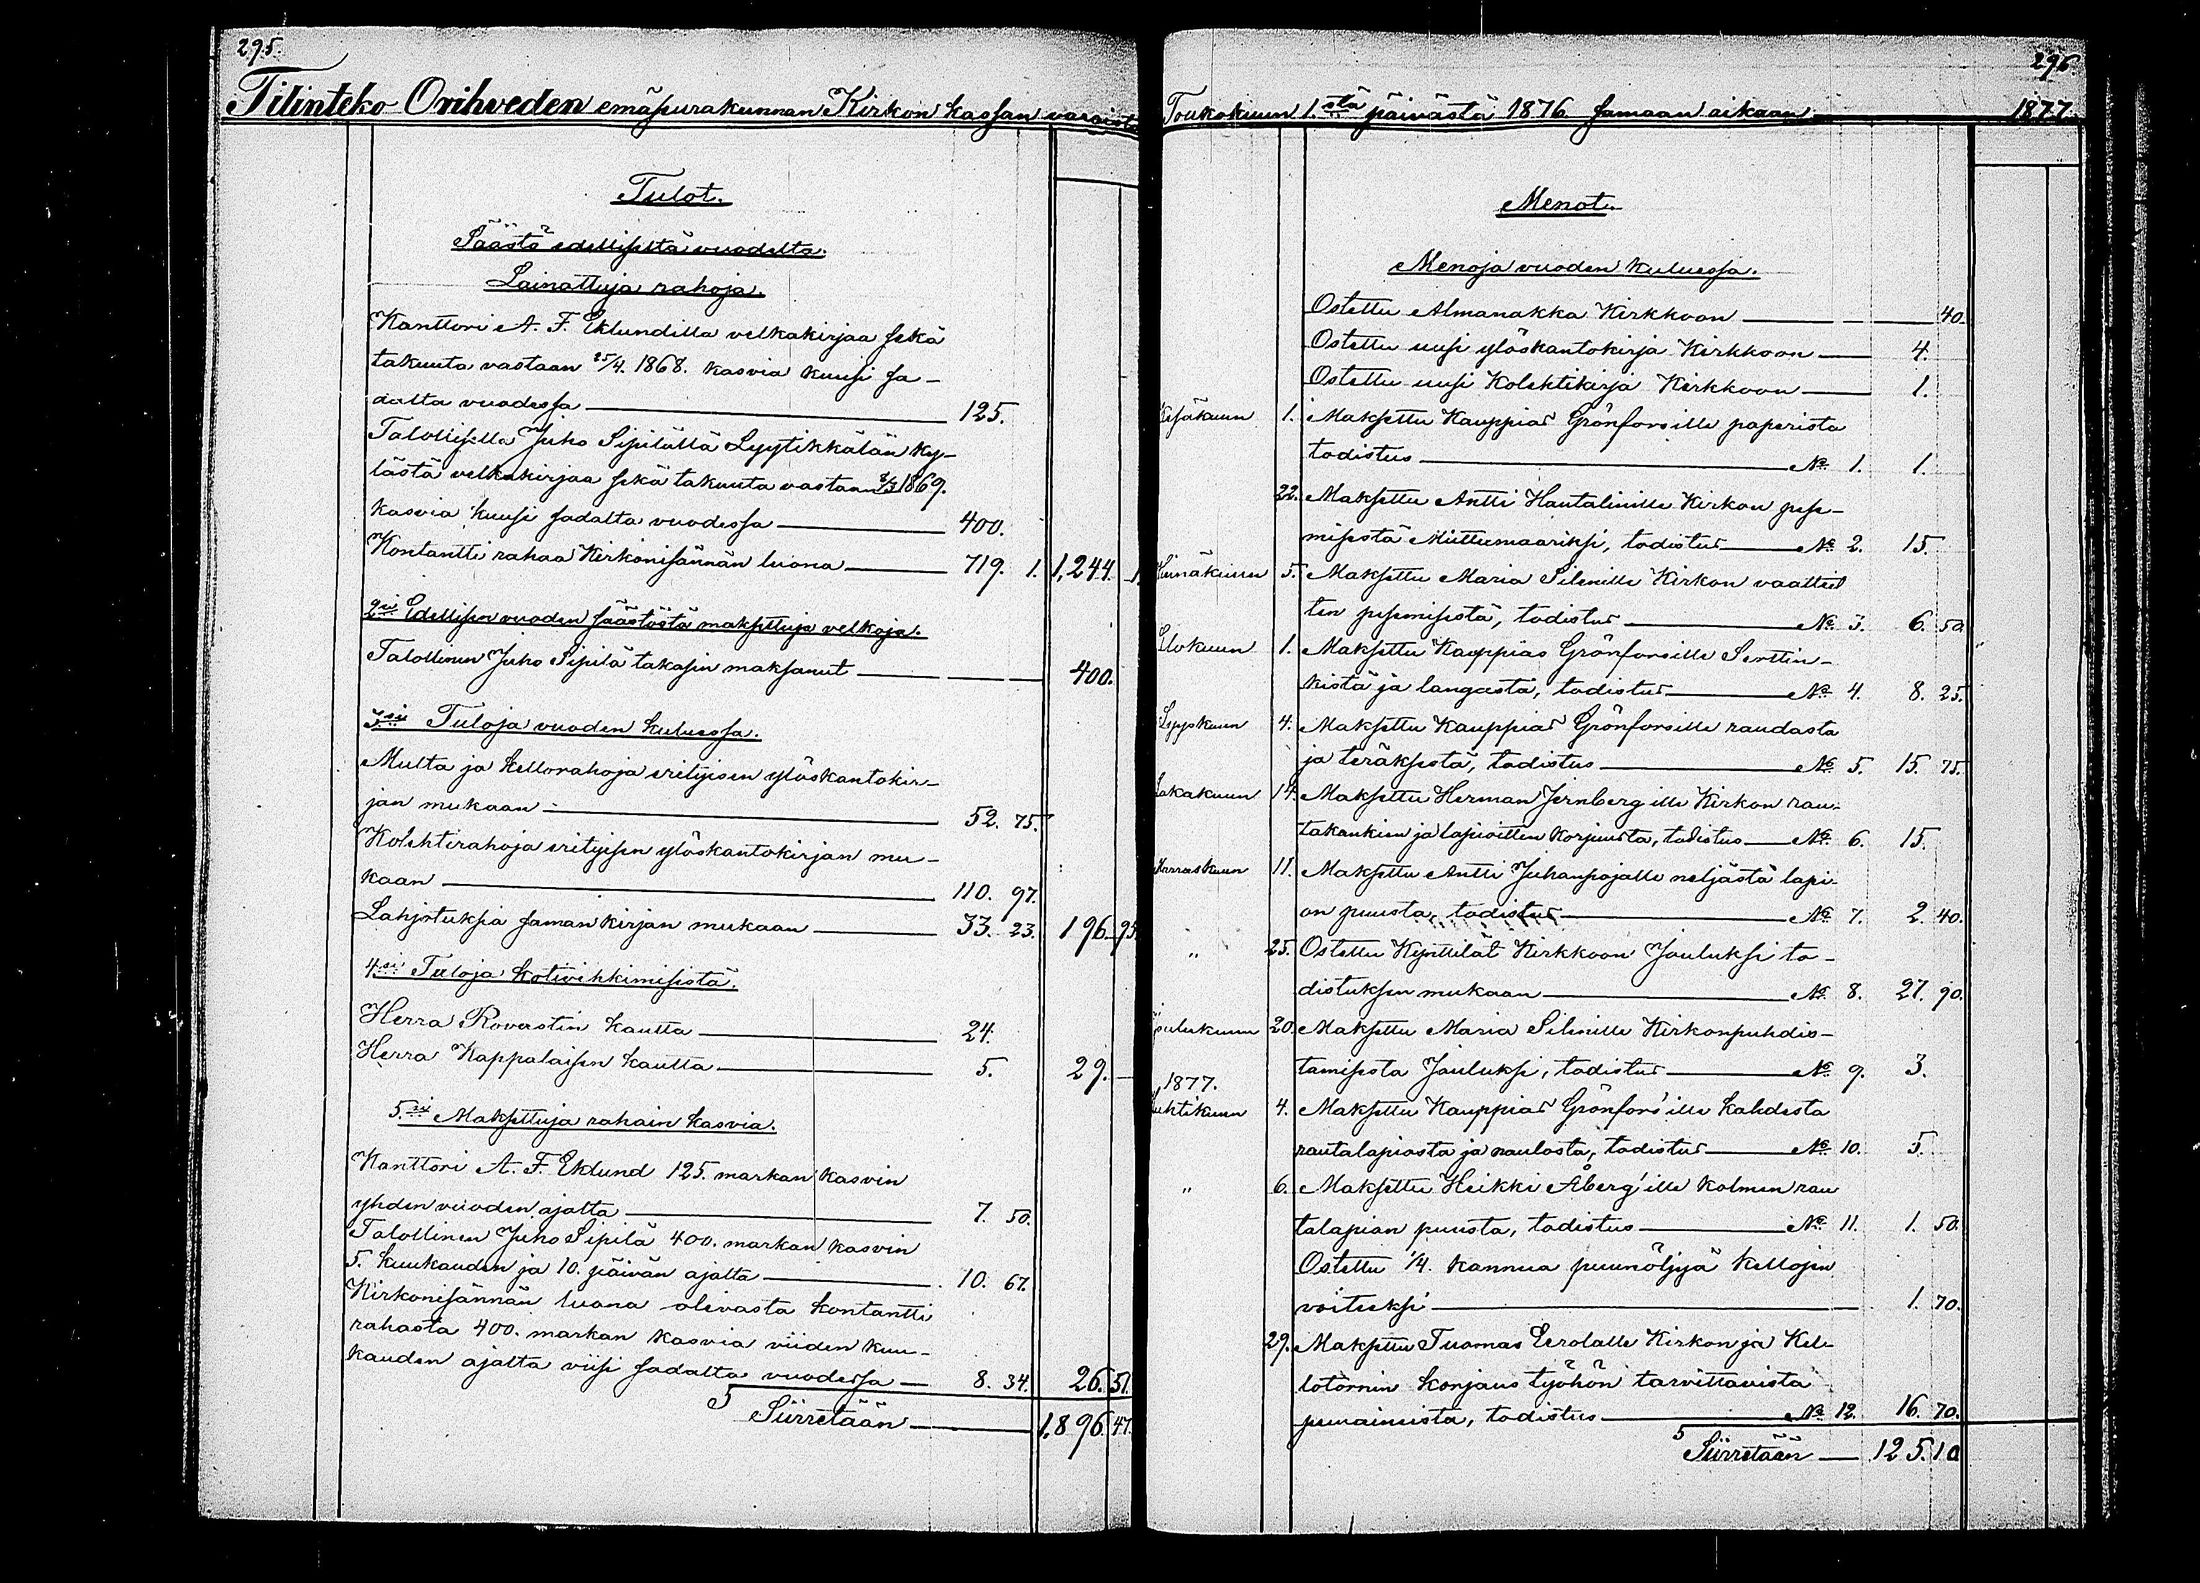 295.
Tilinteko Orihveden emäseurakunnan Kirkon kassan varoista
Tulot.
Säästö edelliseltä vuodelta.
Lainattuja rahoja.
Kanttori A. F. Eklundilla velkakirjaa sekä
takuuta vastaan 25/4. 1868. kasvia kuusi sa-
dalta vuodessa 125.
Talollisella Juho Sipilällä Lyytikkälän ky-
lästä velkakirjaa sekä takuuta vastaan 1869.
kasvia kuusi sadalta vuodessa 400.
Kontantti rahaa Kirkonisännän luona 719. 1. 1,244. 1.
2si Edellisen vuoden säästöstä maksettuja velkoja.
Talollinen Juho Sipilä takasin maksanut 400.
3si Tuloja vuoden kuluessa.
Multa ja kellorahoja erityisen ylöskantokir-
jan mukaan 52. 75.
Kolehtirahoja erityisen ylöskantokirjan mu-
kaan 110. 97.
Lahjotuksia saman kirjan mukaan 33. 23. 196. 95.
4si Tuloja kotivihkimisistä.
Herra Roverstin kautta 24.
Herra Kappalaisen kautta 5. 29. —
5.si Maksettuja rahain kasvia.
Kanttori A. F. Eklund 125. markan kasvin
yhden vuoden ajalta 7. 50.
Talollinen Juho Sipilä 400. markan kasvin
5. kuukauden ja 10. päivän ajalta 10. 67.
Kirkonisännän luona olevasta kontantti
rahasta 400. markan kasvia viiden kuu-
kauden ajalta viisi sadalta vuodessa 8. 34. 26. 51.
Siirretään 1.896. 47.
296.
Toukokuun 1.stä päivästä 1876 samaan aikaan 1877.
Menot.
Menoja vuoden kuluessa.
Ostettu Almanakka Kirkkoon 40.
Ostettu uusi ylöskantokirja Kirkkoon 4.
Ostettu uusi Kolehtikirja Kirkkoon 1.
Kesäkuun 1. Maksettu Kauppias Grönforsille paperista
todistus No 1. 1.
22. Maksettu Antti Hautalinille Kirkon pese-
misestä Mittumaariksi, todistus No 2. 15.
Heinäkuun 5. Maksettu Maria Silenille Kirkon vaatteit
ten pesemisestä, todistus No 3. 6. 50.
Elokuun 1. Maksettu Kauppias Grönforsille Serttin-
kistä ja langasta, todistus No 4. 8. 25.
Syyskuun 4. Maksettu Kauppias Grönforsille raudasta
ja teräksestä, todistus No 5. 15. 75.
Lokakuun 14. Maksettu Herman Jernbergille Kirkon rau-
takankien ja lapioitten korjuusta, todistus No 6. 15.
Marraskuun 11. Maksettu Antti Juhanpojalle neljästä lapi-
on puusta, todistus No 7. 2. 40.
" 25. Ostettu Kynttilät Kirkkoon Jouluksi to-
distuksen mukaan No 8. 27. 90.
Joulukuun 20. Maksettu Maria Silenille Kirkonpuhdis-
tamisesta Jouluksi, todistus No 9. 3.
1877.
Huhtikuun 4. Maksettu Kauppias Grönfors'ille kahdesta
rautalapiosta ja nauloista, todistus No 10. 5.
" 6. Maksettu Heikki Åberg'ille kolmen rau
talapian puusta, todistus No 11. 1. 50.
Ostettu 1/4. kannua puunöljyä kellojen
voiteeksi 1. 70.
29. Maksettu Tuomas Eerolalle Kirkon ja Kel-
lotornin korjaus työhön tarvittavista
puuaineista, todistus No 12. 16. 70.
Siirretään 125. 10